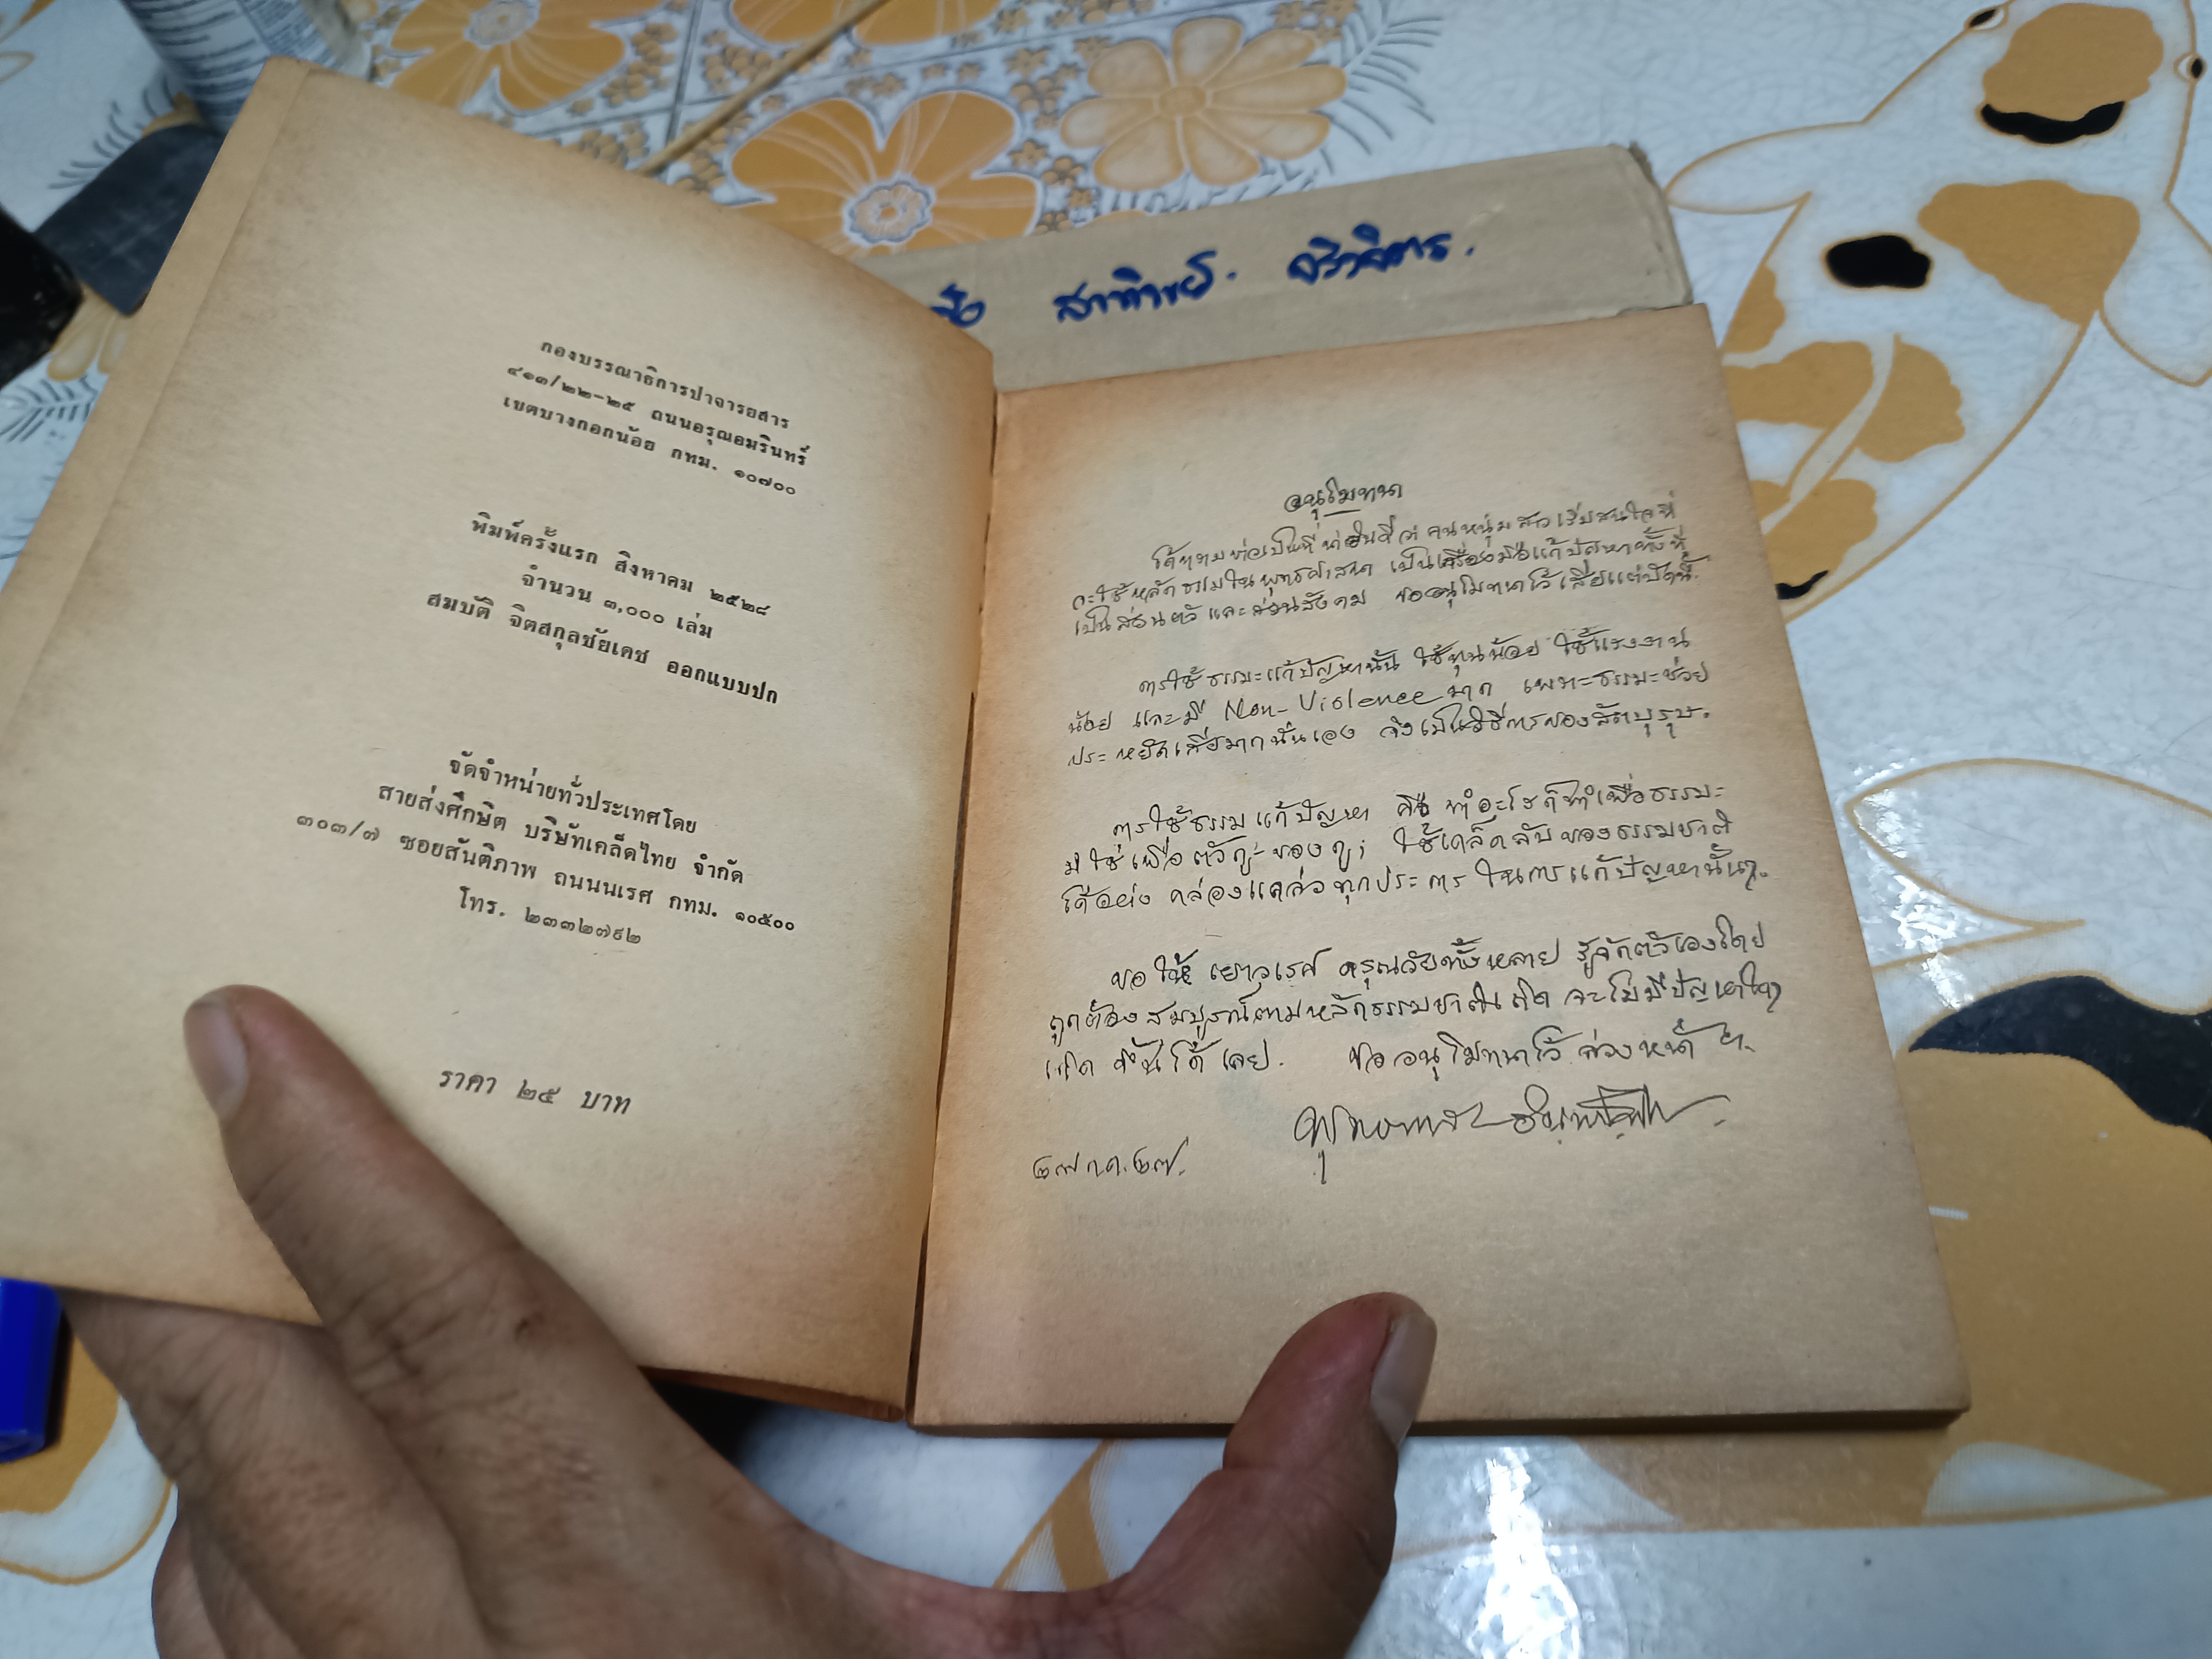 สาทิาย์. จิวิจิตร.
กองบรรณาธิการปาจารยสาร
๔๑๓/๒๒-๒๕ ถนนอรุณอมรินทร์
เขตบางกอกน้อย กทม. ๑๐๗๐๐
พิมพ์ครั้งแรก สิงหาคม ๒๕๒๘
จำนวน ๓,๐๐๐ เล่ม
สมบัติ จิตสกุลชัยเดช ออกแบบปก
จัดจำหน่ายทั่วประเทศโดย
สายส่งศึกษิต บริษัทเคล็ดไทย จำกัด
๓๐๓/๗ ซอยสันติภาพ ถนนนเรศ กทม. ๑๐๕๐๐
โทร. ๒๓๓๒๗๙๒
ราคา ๒๕ บาท
อนุโมทนา
ได้ทราบข่าวเป็นที่น่ายินดีว่า คนหนุ่มสาวเริ่มสนใจที่
จะใช้หลักธรรมในพุทธศาสนา เป็นเครื่องมือแก้ปัญหาทั้งที่
เป็นส่วนตัวและส่วนสังคม ขออนุโมทนาไว้เสียแต่บัดนี้.
การใช้ธรรมะแก้ปัญหานั้น ใช้ทุนน้อย ใช้แรงงาน
น้อย และมี Non-Violence มาก เพราะธรรมะช่วย
ประหยัดเสียมากนั่นเอง จึงเป็นวิธีการของสัตบุรุษ.
การใช้ธรรมแก้ปัญหา คือ ทำอะไรก็ทำเพื่อธรรมะ
มิใช่เพื่อตัวกู-ของกู; ใช้เคล็ดลับของธรรมชาติ
ได้อย่างคล่องแคล่วทุกประการ ในการแก้ปัญหานั้นๆ.
ขอให้เยาวเรศ ดรุณวัยทั้งหลาย รู้จักตัวเองโดย
ถูกต้องสมบูรณ์ตามหลักธรรมชาติเถิด จะไม่มีปัญหาใดๆ
เกิดขึ้นได้เลย. ขออนุโมทนาไว้ล่วงหน้า
พุทธทาส อินทปัญโญ
๒๗ ก.ค. ๒๗.